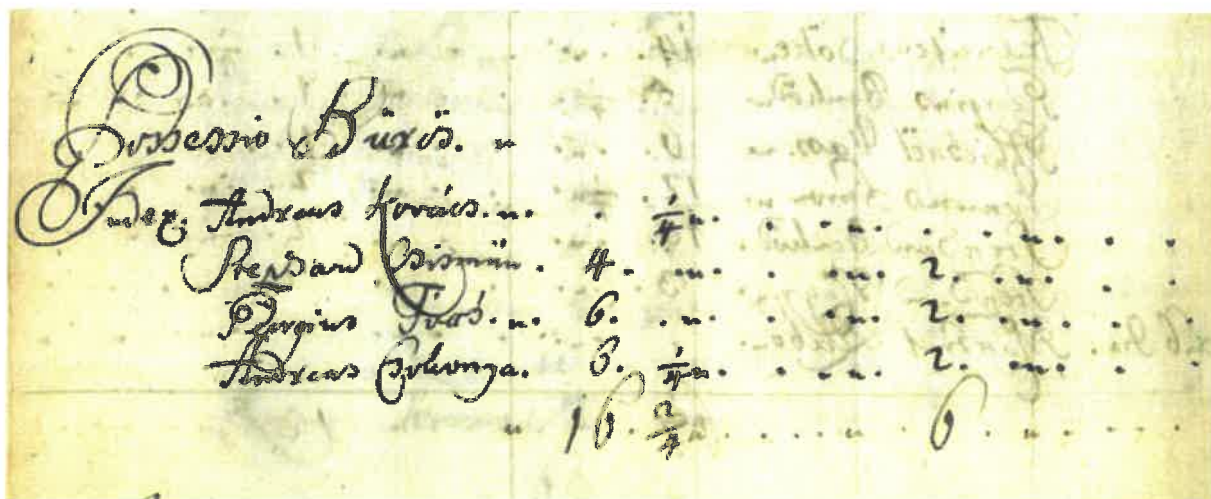 Possessio Bürös. „
Judex. Andreas Kovács. „. . 1/4 „. . . . „. . . „. . . .
Stephan Csismás. 4. „. . . „. 2. „. . . .
Giörgius Tóot. „. 6. . „. . . „. 2. „. . . .
Andreas Csolonga. 6. 1/4 „. . . . „. 2. „. . . .
„ 16. 2/4 „. . . . „. 6. „. . . .